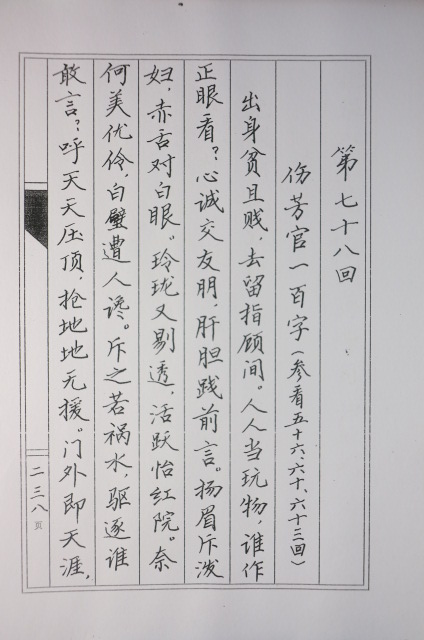 第七十八回
伤芳官一百字(参看五十六、六十、六十三回)
出身贫且贱，去留指顾间。人人当玩物，谁作
正眼看？心诚交友朋，肝胆践前言。扬眉斥泼
妇，赤舌对白眼。玲珑又剔透，活跃怡红院。奈
何美优伶，白璧遭人谗。斥之若祸水，驱逐谁
敢言？呼天天压顶，抢地地无援。门外即天涯，
二三八页